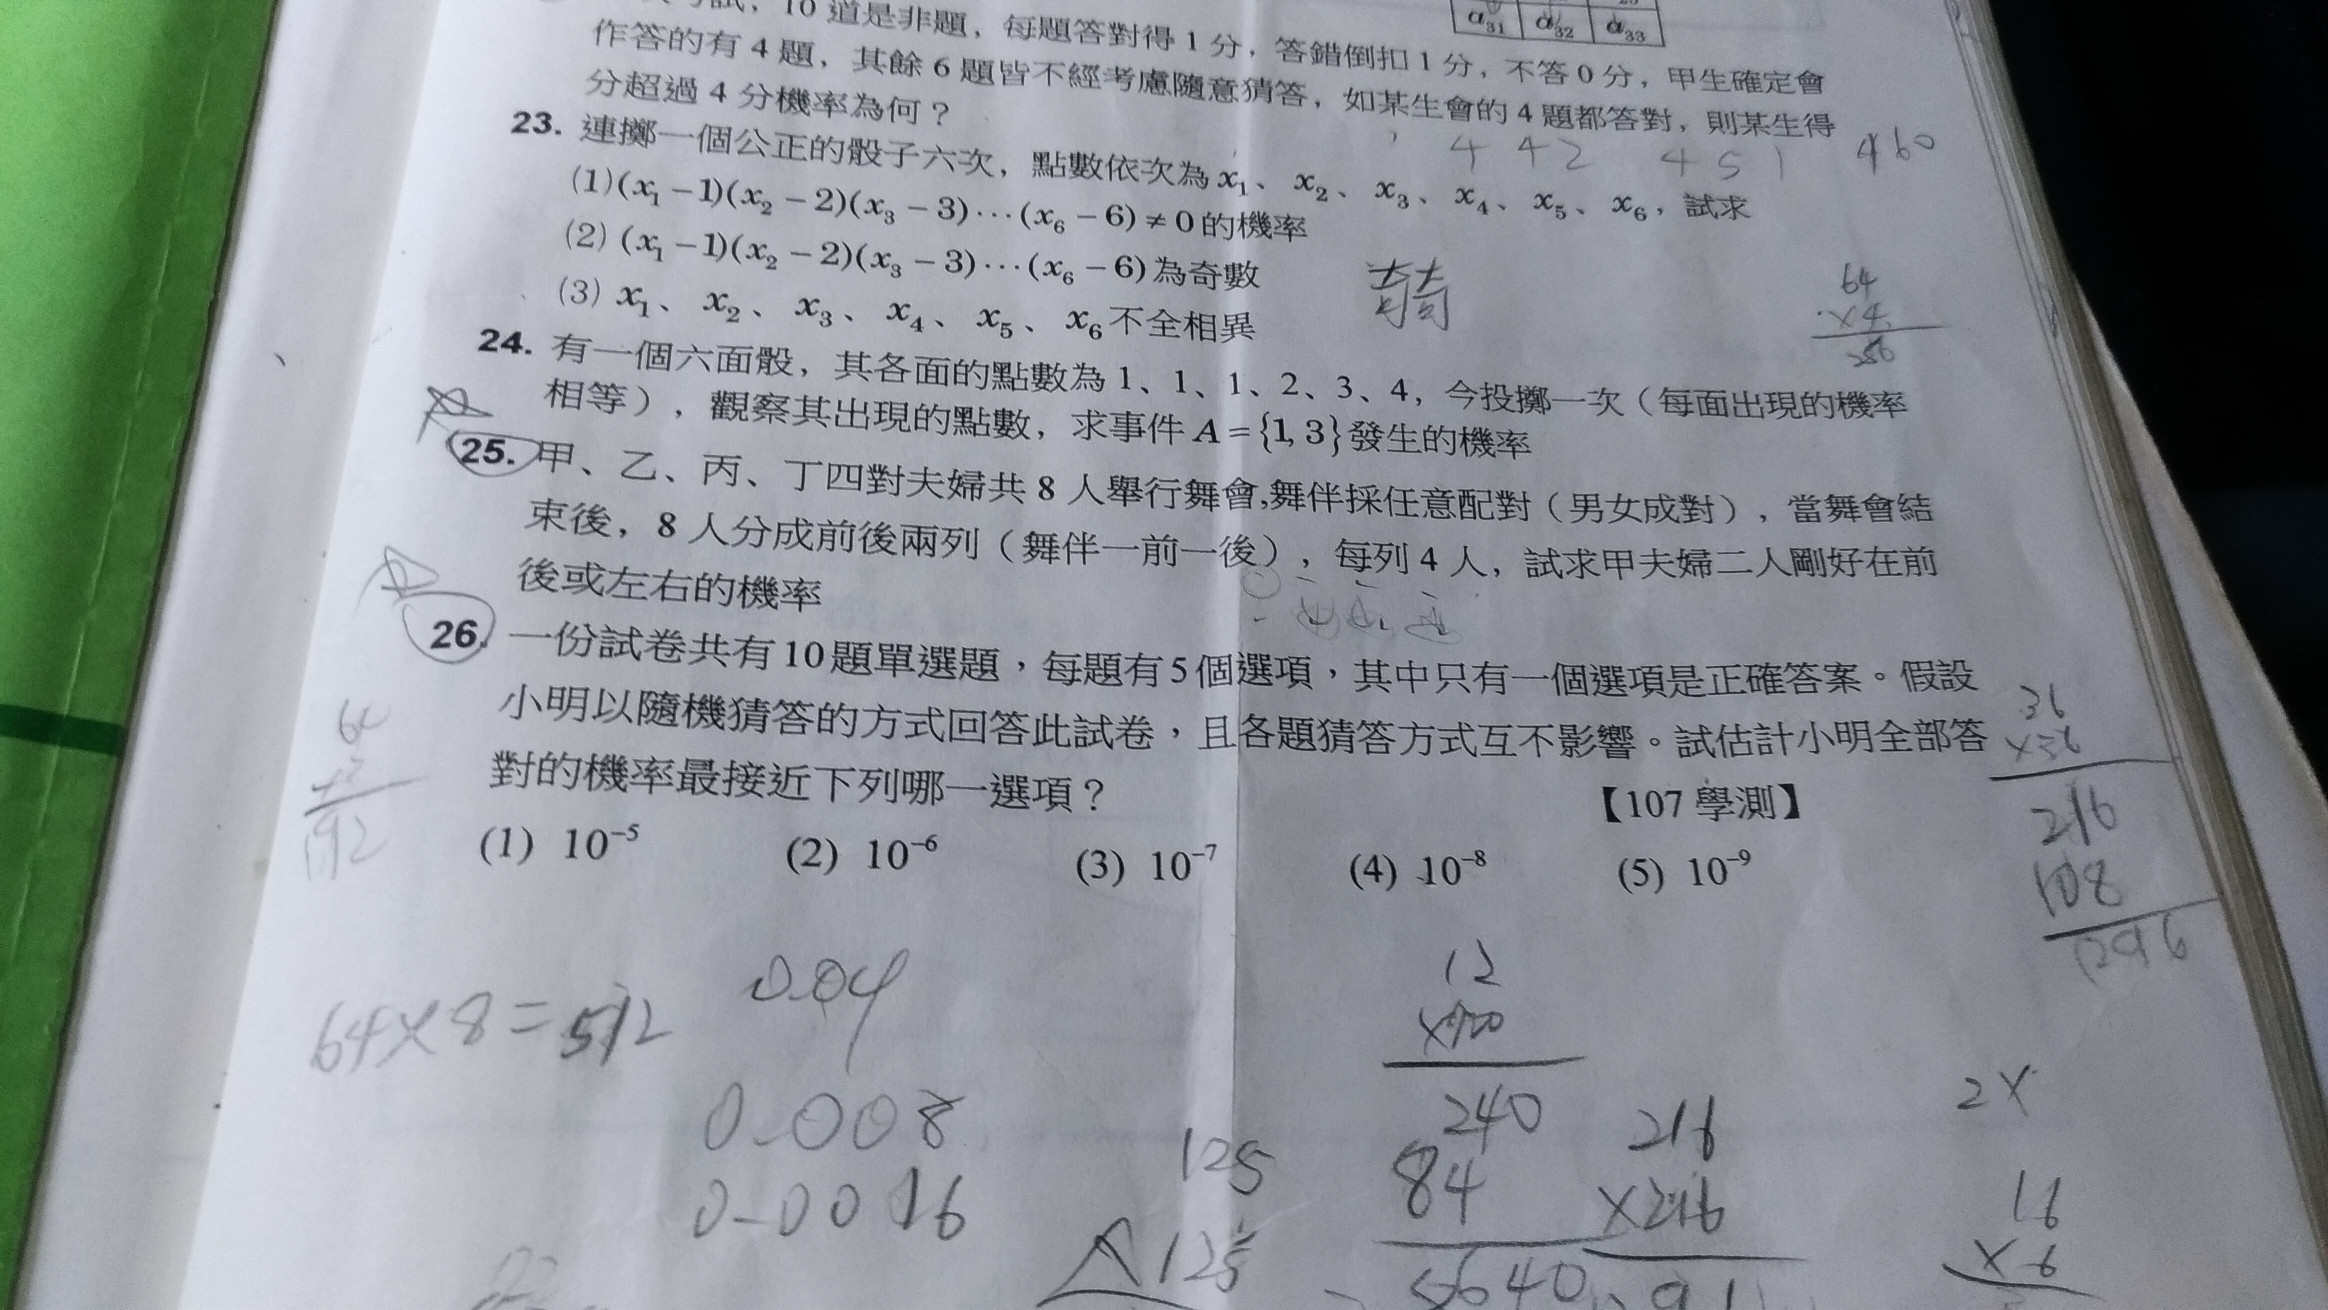 10 道是非題，每題答對得 1 分，答錯倒扣 1 分，不答 0 分，甲生確定會
作答的有 4 題，其餘 6 題皆不經考慮隨意猜答，如某生會的 4 題都答對，則某生得
分超過 4 分機率為何？
a₃₁ a₃₂ a₃₃
4 4 2 4 5 1 4 6 0
23. 連擲一個公正的骰子六次，點數依次為 x₁、x₂、x₃、x₄、x₅、x₆，試求
(1)(x₁－1)(x₂－2)(x₃－3)⋯(x₆－6)≠0 的機率
(2) (x₁－1)(x₂－2)(x₃－3)⋯(x₆－6) 為奇數
(3) x₁、x₂、x₃、x₄、x₅、x₆ 不全相異
64
×4
256
24. 有一個六面骰，其各面的點數為 1、1、1、2、3、4，今投擲一次（每面出現的機率
相等），觀察其出現的點數，求事件 A＝{1, 3} 發生的機率
25. 甲、乙、丙、丁四對夫婦共 8 人舉行舞會,舞伴採任意配對（男女成對），當舞會結
束後，8 人分成前後兩列（舞伴一前一後），每列 4 人，試求甲夫婦二人剛好在前
後或左右的機率
26. 一份試卷共有 10 題單選題，每題有 5 個選項，其中只有一個選項是正確答案。假設
小明以隨機猜答的方式回答此試卷，且各題猜答方式互不影響。試估計小明全部答
對的機率最接近下列哪一選項？ 【107 學測】
(1) 10⁻⁵ (2) 10⁻⁶ (3) 10⁻⁷ (4) 10⁻⁸ (5) 10⁻⁹
192
216
108
1296
64×8＝512
0.04
0.008
0.0016
125
125
12
240
84
5640
216
×216
2×
16
×6